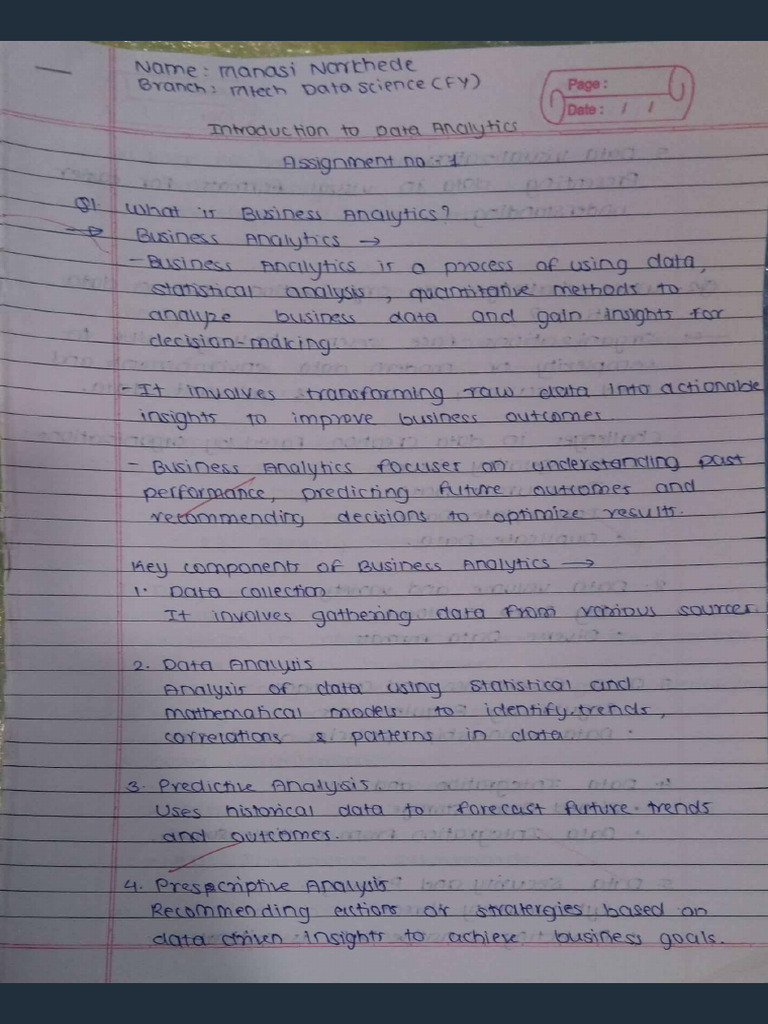 Name: Manasi Narkhede
Branch: Mtech Data Science (FY)
Page:
Date: / /
Introduction to Data Analytics
Assignment no - 1
Q1. What is Business Analytics?
→ Business Analytics →
- Business Analytics is a process of using data,
statistical analysis, quantitative methods to
analyze business data and gain insights for
decision-making
- It involves transforming raw data into actionable
insights to improve business outcomes.
- Business Analytics focuses on understanding past
performance, predicting future outcomes and
recommending decisions to optimize results.
Key components of Business Analytics →
1. Data collection
It involves gathering data from various sources
2. Data Analysis
Analysis of data using statistical and
mathematical models to identify trends,
correlations & patterns in data
3. Predictive Analysis
Uses historical data to forecast future trends
and outcomes.
4. Prescriptive Analysis
Recommending actions or stratergies based on
data driven insights to achieve business goals.